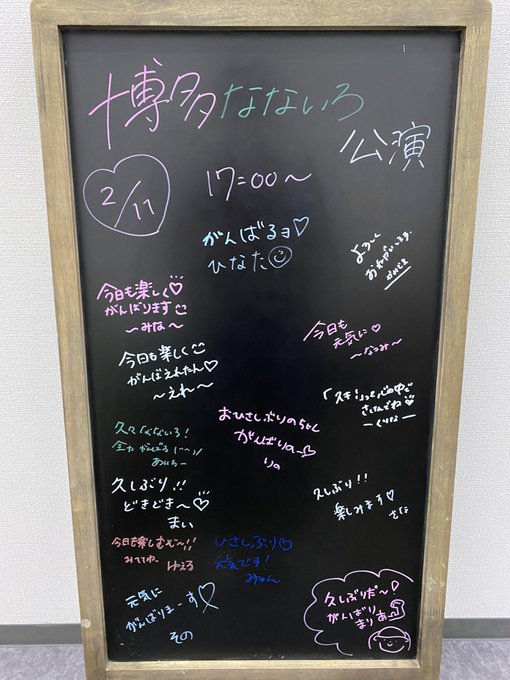 博多なないろ
公演
2/11
17:00〜
がんばるヨ♡
ひなた☺
よろしく
お願いします。
今日も楽しく♡
がんばります
〜みな〜
今日も
元気に♡
〜なつみ〜
今日も楽しく
がんばえれたん♡
〜えれ〜
「スキ!」って心の中で
さけんでね♡
おひさしぶりのちゃん
がんばりの〜♡
りの
久々なないろ!
全力がんばる
久しぶり!!
どきどき〜♡
まい
久しぶり!!
楽しみます♡
さな
今日も楽しむむ〜!!
みててね。
ひさしぶり♡
元気です!
みおん
元気に
がんばりまーす♡
その
久しぶりだ〜!
がんばり
まりあ